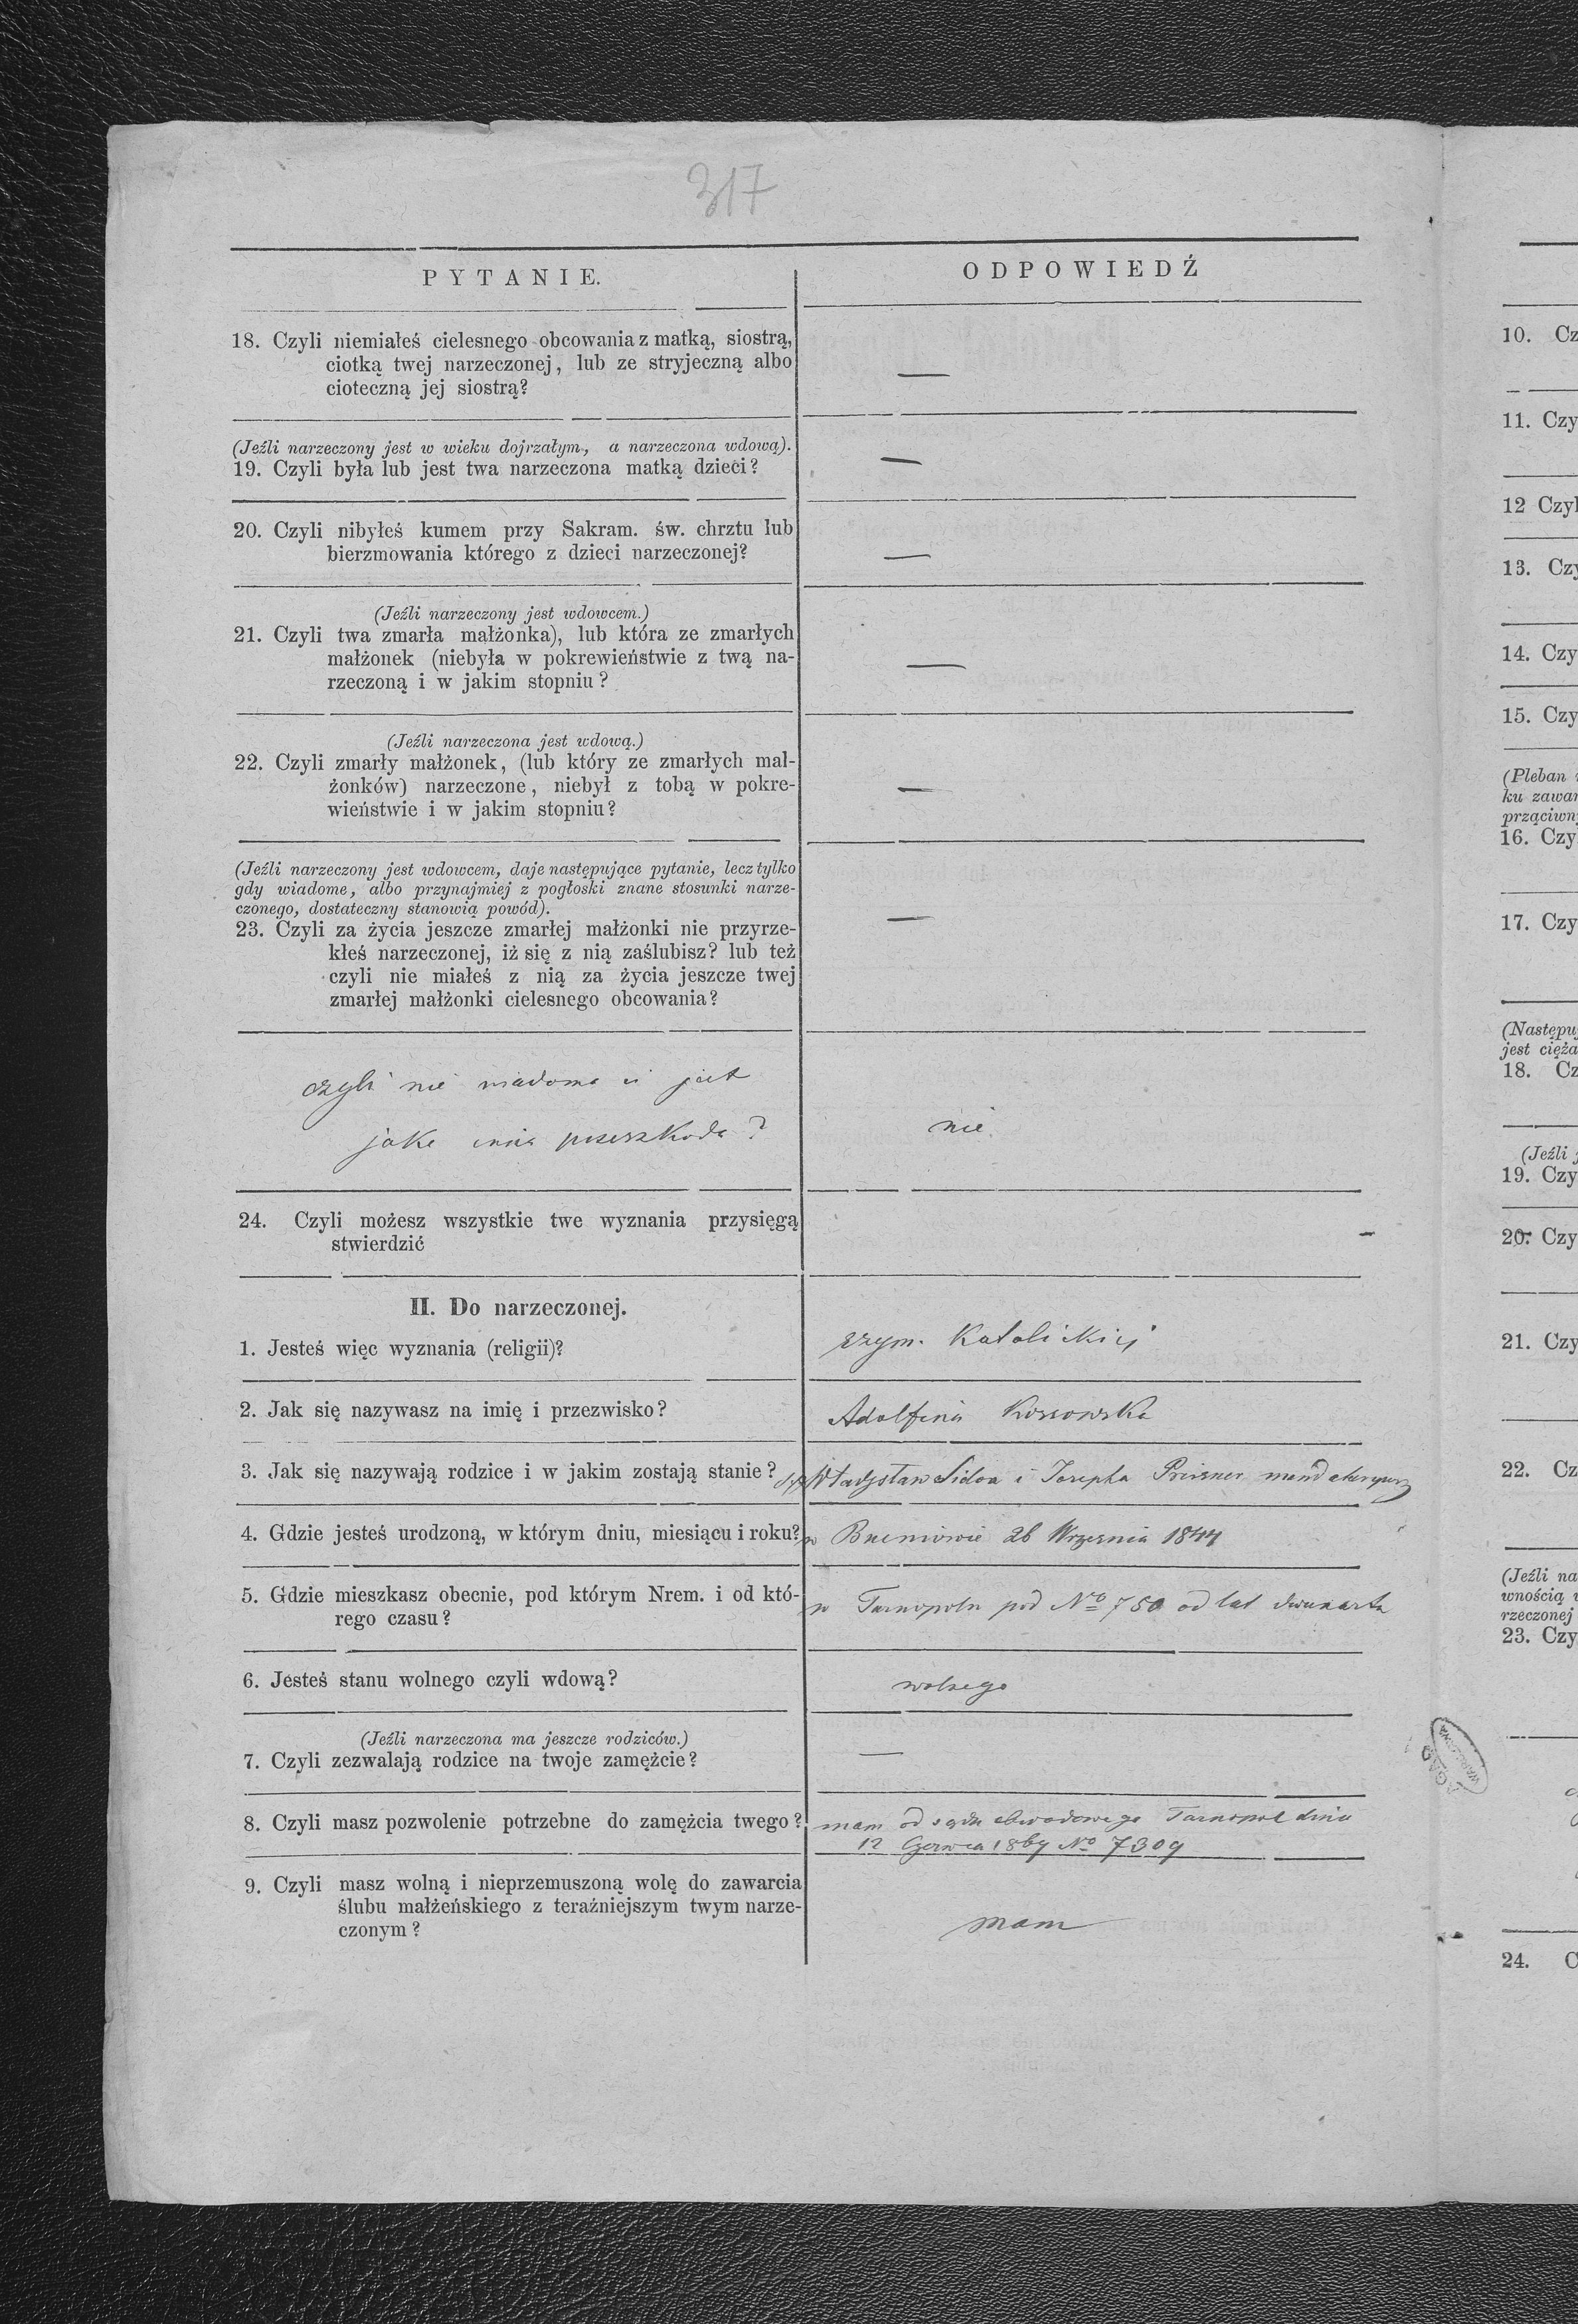 317
PYTANIE.
ODPOWIEDŹ
18. Czyli niemiałeś cielesnego obcowania z matką, siostrą,
ciotką twej narzeczonej, lub ze stryjeczną albo
cioteczną jej siostrą?
—
(Jeźli narzeczony jest w wieku dojrzałym, a narzeczona wdową).
19. Czyli była lub jest twa narzeczona matką dzieci?
—
20. Czyli nibyłeś kumem przy Sakram. św. chrztu lub
bierzmowania którego z dzieci narzeczonej?
—
(Jeźli narzeczony jest wdowcem.)
21. Czyli twa zmarła małżonka), lub która ze zmarłych
małżonek (niebyła w pokrewieństwie z twą na-
rzeczoną i w jakim stopniu?
—
(Jeźli narzeczona jest wdową.)
22. Czyli zmarły małżonek, (lub który ze zmarłych mał-
żonków) narzeczone, niebył z tobą w pokre-
wieństwie i w jakim stopniu?
—
(Jeźli narzeczony jest wdowcem, daje następujące pytanie, lecz tylko
gdy wiadome, albo przynajmiej z pogłoski znane stosunki narze-
czonego, dostateczny stanowią powód).
23. Czyli za życia jeszcze zmarłej małżonki nie przyrze-
kłeś narzeczonej, iż się z nią zaślubisz? lub też
czyli nie miałeś z nią za życia jeszcze twej
zmarłej małżonki cielesnego obcowania?
—
czyli nie wiadoma ci jest
jaka inna przeszkoda?
nie
24. Czyli możesz wszystkie twe wyznania przysięgą
stwierdzić
II. Do narzeczonej.
1. Jesteś więc wyznania (religii)?
rzym. Katolickiej
2. Jak się nazywasz na imię i przezwisko?
Adolfina Kossowska
3. Jak się nazywają rodzice i w jakim zostają stanie?
Władysław i Josepha
4. Gdzie jesteś urodzoną, w którym dniu, miesiącu i roku?
w 26 Września 1844
5. Gdzie mieszkasz obecnie, pod którym Nrem. i od któ-
rego czasu?
w Tarnopolu pod No 750 od lat
6. Jesteś stanu wolnego czyli wdową?
wolnego
(Jeźli narzeczona ma jeszcze rodziców.)
7. Czyli zezwalają rodzice na twoje zamężcie?
—
8. Czyli masz pozwolenie potrzebne do zamężcia twego?
mam od sądu obwodowego Tarnopol dnia
12 Czerwca 1869 No 7309
9. Czyli masz wolną i nieprzemuszoną wolę do zawarcia
ślubu małżeńskiego z teraźniejszym twym narze-
czonym?
mam
10. Cz
11. Czy
12 Czyl
13. Czy
14. Czy
15. Czy
(Pleban
ku zawar
prząciwn
16. Czy
17. Czy
(Następuj
jest cięża
18. Cz
(Jeźli j
19. Czy
20. Czy
21. Czy
22. Cz
(Jeźli na
wnością
rzeczonej
23. Czy
AGAD
WARSZAWA
24. C